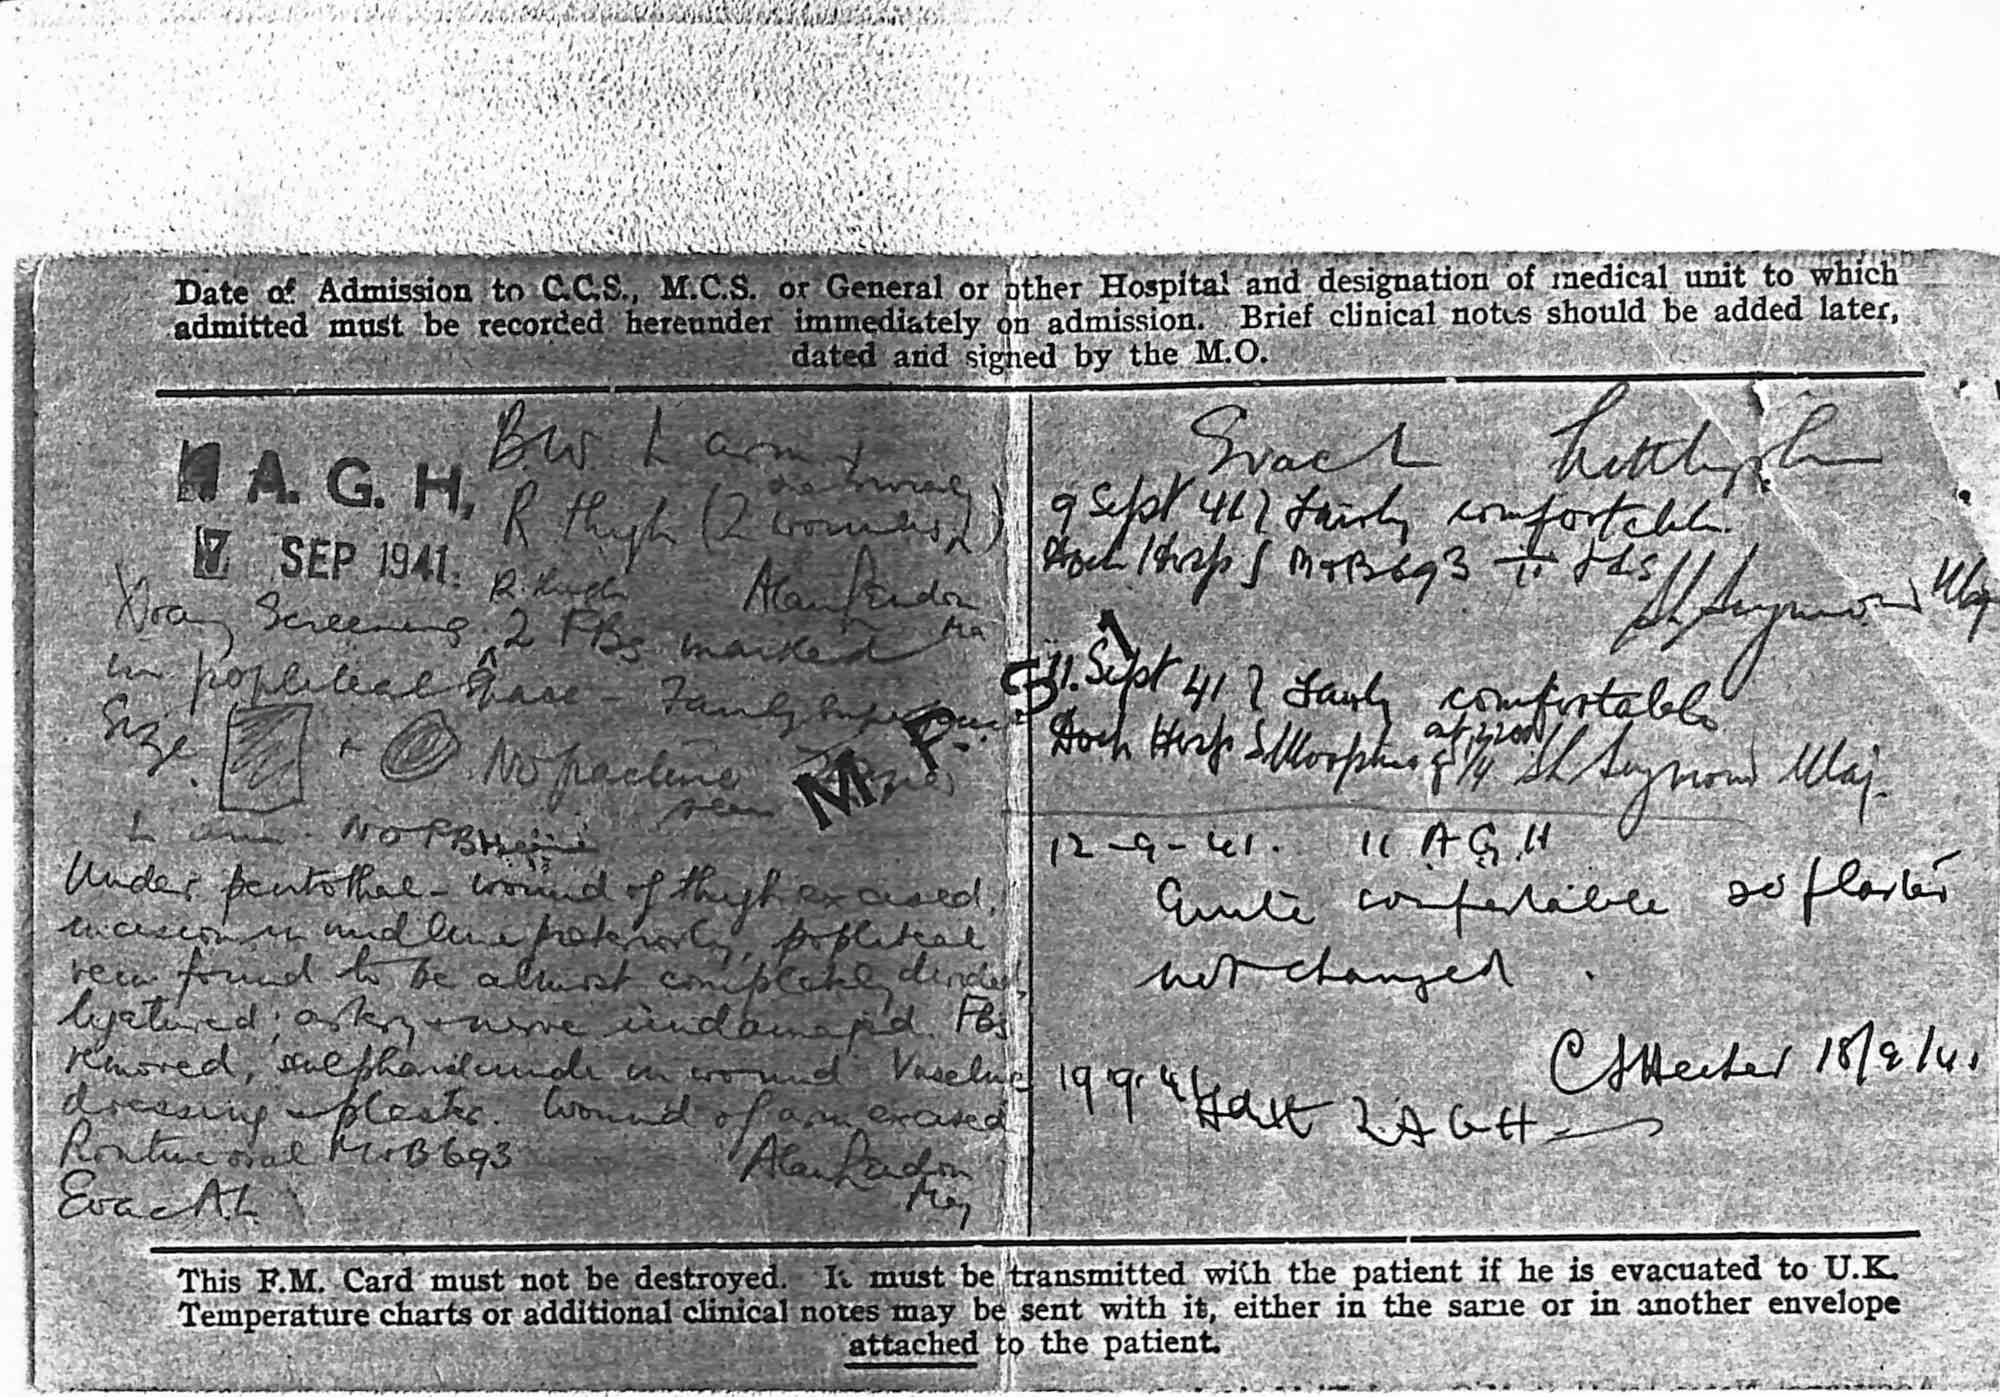 Date of Admission to C.C.S., M.C.S. or General or other Hospital and designation of medical unit to which
admitted must be recorded hereunder immediately on admission. Brief clinical notes should be added later,
dated and signed by the M.O.
A. G. H,
7 SEP 1941.
B.W. L arm +
R thigh (2 wounds)
R. thigh
Alan
Xray Screening 2 FBs marked
in popliteal space - Fairly
Size + No fracture
seen
L arm. No FB
Under pentothal - wound of thigh excised,
incision in midline posteriorly, popliteal
vein found to be almost completely divided,
ligatured; artery + nerve undamaged. FBs
removed, sulphanilamide in wound Vaseline
dressing + plaster. Wound of arm excised
Routine oral M+B 693
Alan
Maj
Evac A.L.
M. P. S. 1
Evac L
9 Sept 41 } Fairly comfortable.
Hosp } M+B 693 II
Seymour Maj
11. Sept 41 } Fairly comfortable
Hosp } Morphia gr 1/4 Seymour Maj.
12-9-41. 11 A G H
Quite comfortable so plaster
not changed.
18/9/41
19.9.41 2 A G H
This F.M. Card must not be destroyed. It must be transmitted with the patient if he is evacuated to U.K.
Temperature charts or additional clinical notes may be sent with it, either in the same or in another envelope
attached to the patient.